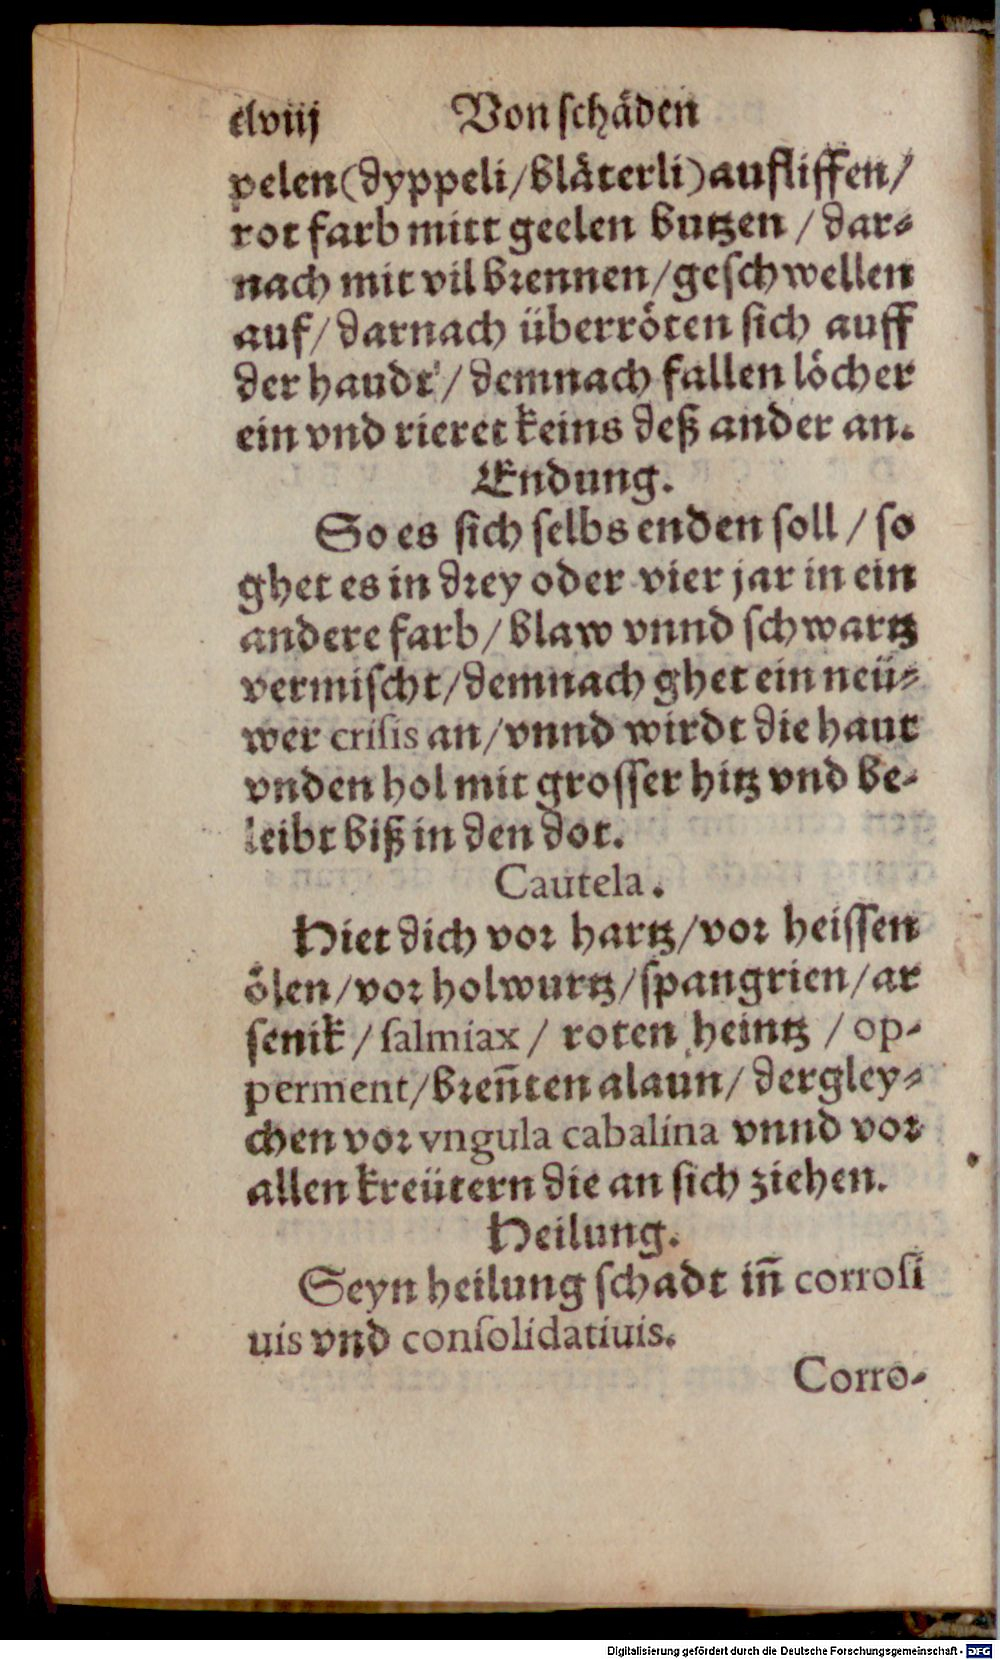 clviij Von schäden
pelen (dyppeli / bläterli) aufliffen /
rot farb mitt geelen butzen / dar-
nach mit vil brennen / geschwellen
auf / darnach überröten sich auff
der haudt / demnach fallen löcher
ein vnd rieret keins deß ander an.
Endung.
So es sich selbs enden soll / so
ghet es in drey oder vier jar in ein
andere farb / blaw vnnd schwartz
vermischt / demnach ghet ein neü-
wer crisis an / vnnd wirdt die haut
vnden hol mit grosser hitz vnd be-
leibt biß in den dot.
Cautela.
Hiet dich vor hartz / vor heissen
ölen / vor holwurtz / spangrien / ar
senik / salmiax / roten heintz / op-
perment / breñten alaun / dergley-
chen vor vngula cabalina vnnd vor
allen kreütern die an sich ziehen.
Heilung.
Seyn heilung schadt iñ corrosi
uis vnd consolidatiuis.
Corro-
Digitalisierung gefördert durch die Deutsche Forschungsgemeinschaft - DFG